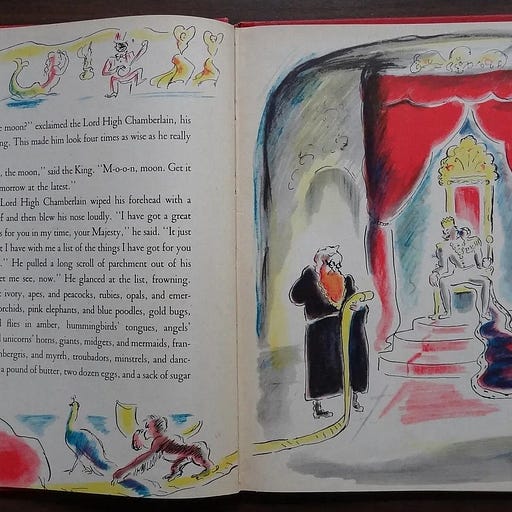 e moon?" exclaimed the Lord High Chamberlain, his
ng. This made him look four times as wise as he really
, the moon," said the King. "M-o-o-n, moon. Get it
morrow at the latest."
Lord High Chamberlain wiped his forehead with a
f and then blew his nose loudly. "I have got a great
s for you in my time, your Majesty," he said. "It just
t I have with me a list of the things I have got for you
." He pulled a long scroll of parchment out of his
et me see, now." He glanced at the list, frowning.
e ivory, apes, and peacocks, rubies, opals, and emer-
orchids, pink elephants, and blue poodles, gold bugs,
d flies in amber, hummingbirds' tongues, angels'
d unicorns' horns, giants, midgets, and mermaids, fran-
mbergris, and myrrh, troubadors, minstrels, and danc-
a pound of butter, two dozen eggs, and a sack of sugar